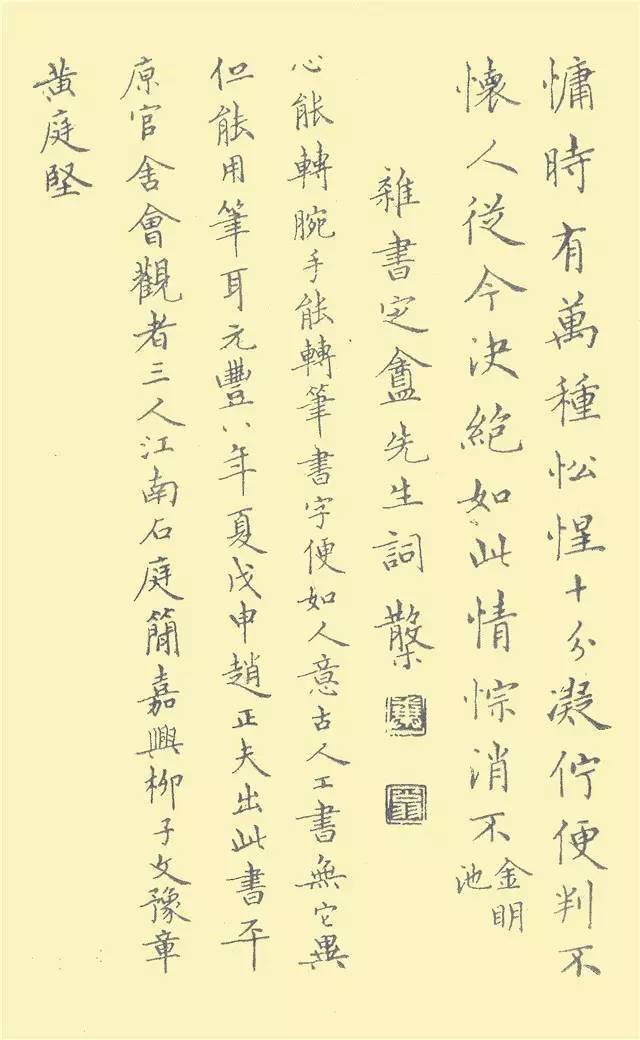 慵時有萬種忪惺十分凝佇便判不
懷人從今決絕如此情悰消不金明池
雜書定盦先生詞
心能轉腕手能轉筆書字便如人意古人工書無它異
但能用筆耳元豐八年夏戊申趙正夫出此書平
原官舍會觀者三人江南石庭簡嘉興柳子文豫章
黃庭堅